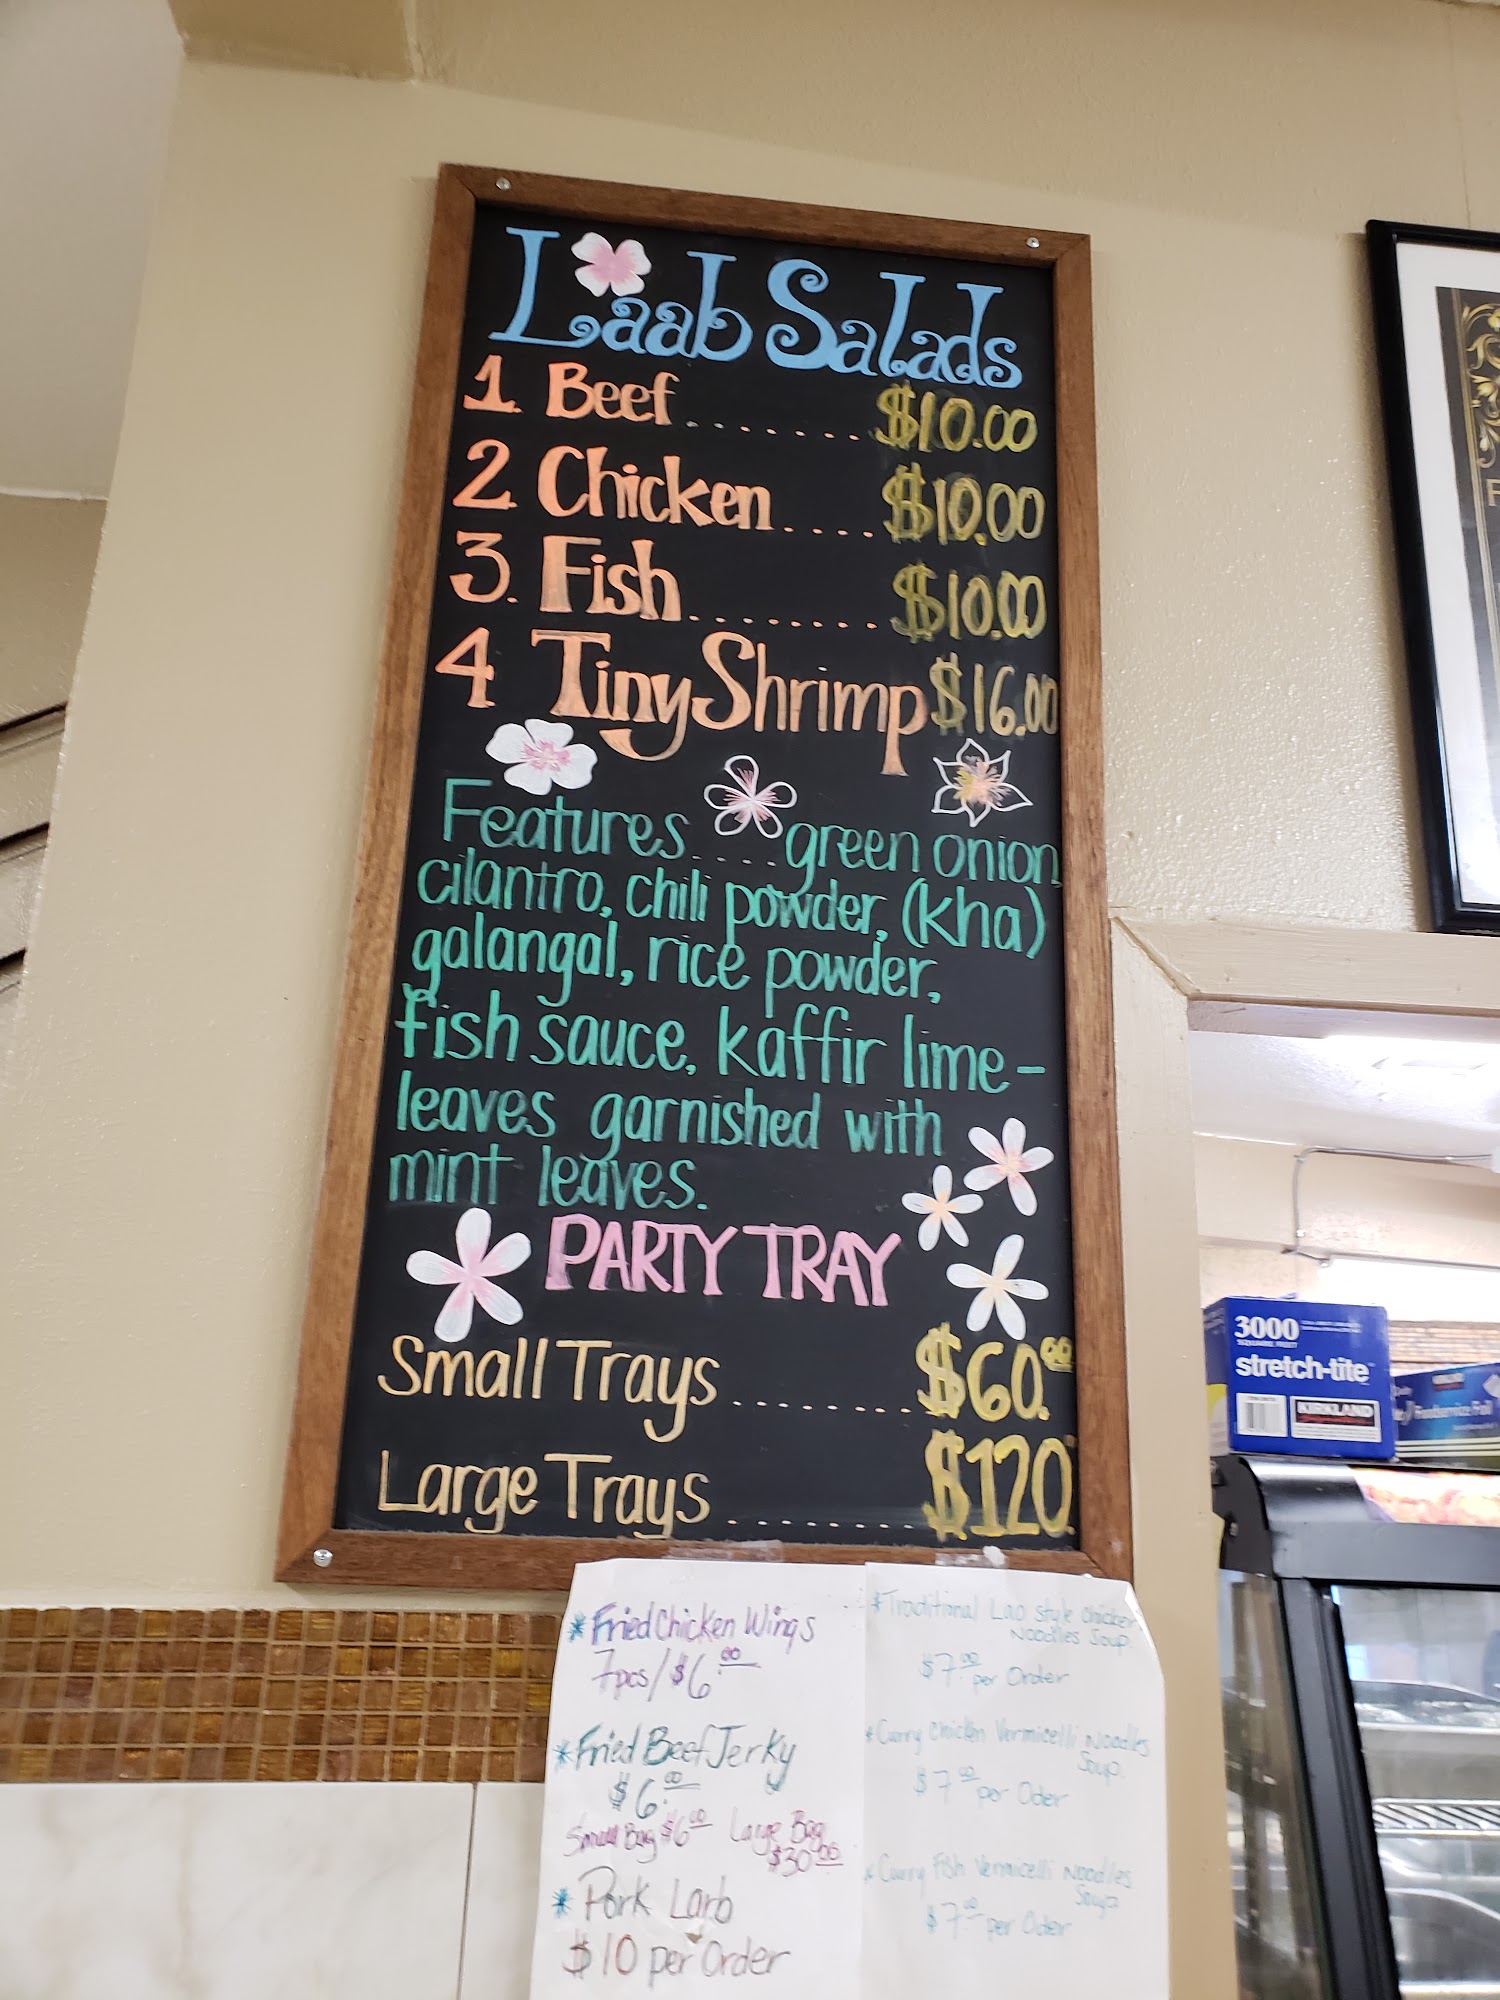 Laab Salads
1. Beef.......$10.00
2. Chicken....$10.00
3. Fish........$10.00
4 Tiny Shrimp $16.00
Features....green onion,
cilantro, chili powder, (kha)
galangal, rice powder,
fish sauce, kaffir lime-
leaves garnished with
mint leaves.
PARTY TRAY
Small Trays........$60.00
Large Trays........$120
*Fried Chicken Wings
7pcs/$6.00
*Fried Beef Jerky
$6.00
Small Bag $6.00 Large Bag
$30.00
*Pork Larb
$10 per Order
*Traditional Lao style chicken
Noodles Soup
$7.00 per Order
*Curry Chicken Vermicelli Noodles
Soup.
$7.00 per Oder
*Curry Fish Vermicelli Noodles
Soup
$7.00 per Oder
3000
SQUARE FEET
stretch-tite
KIRKLAND
Foodservice Foil